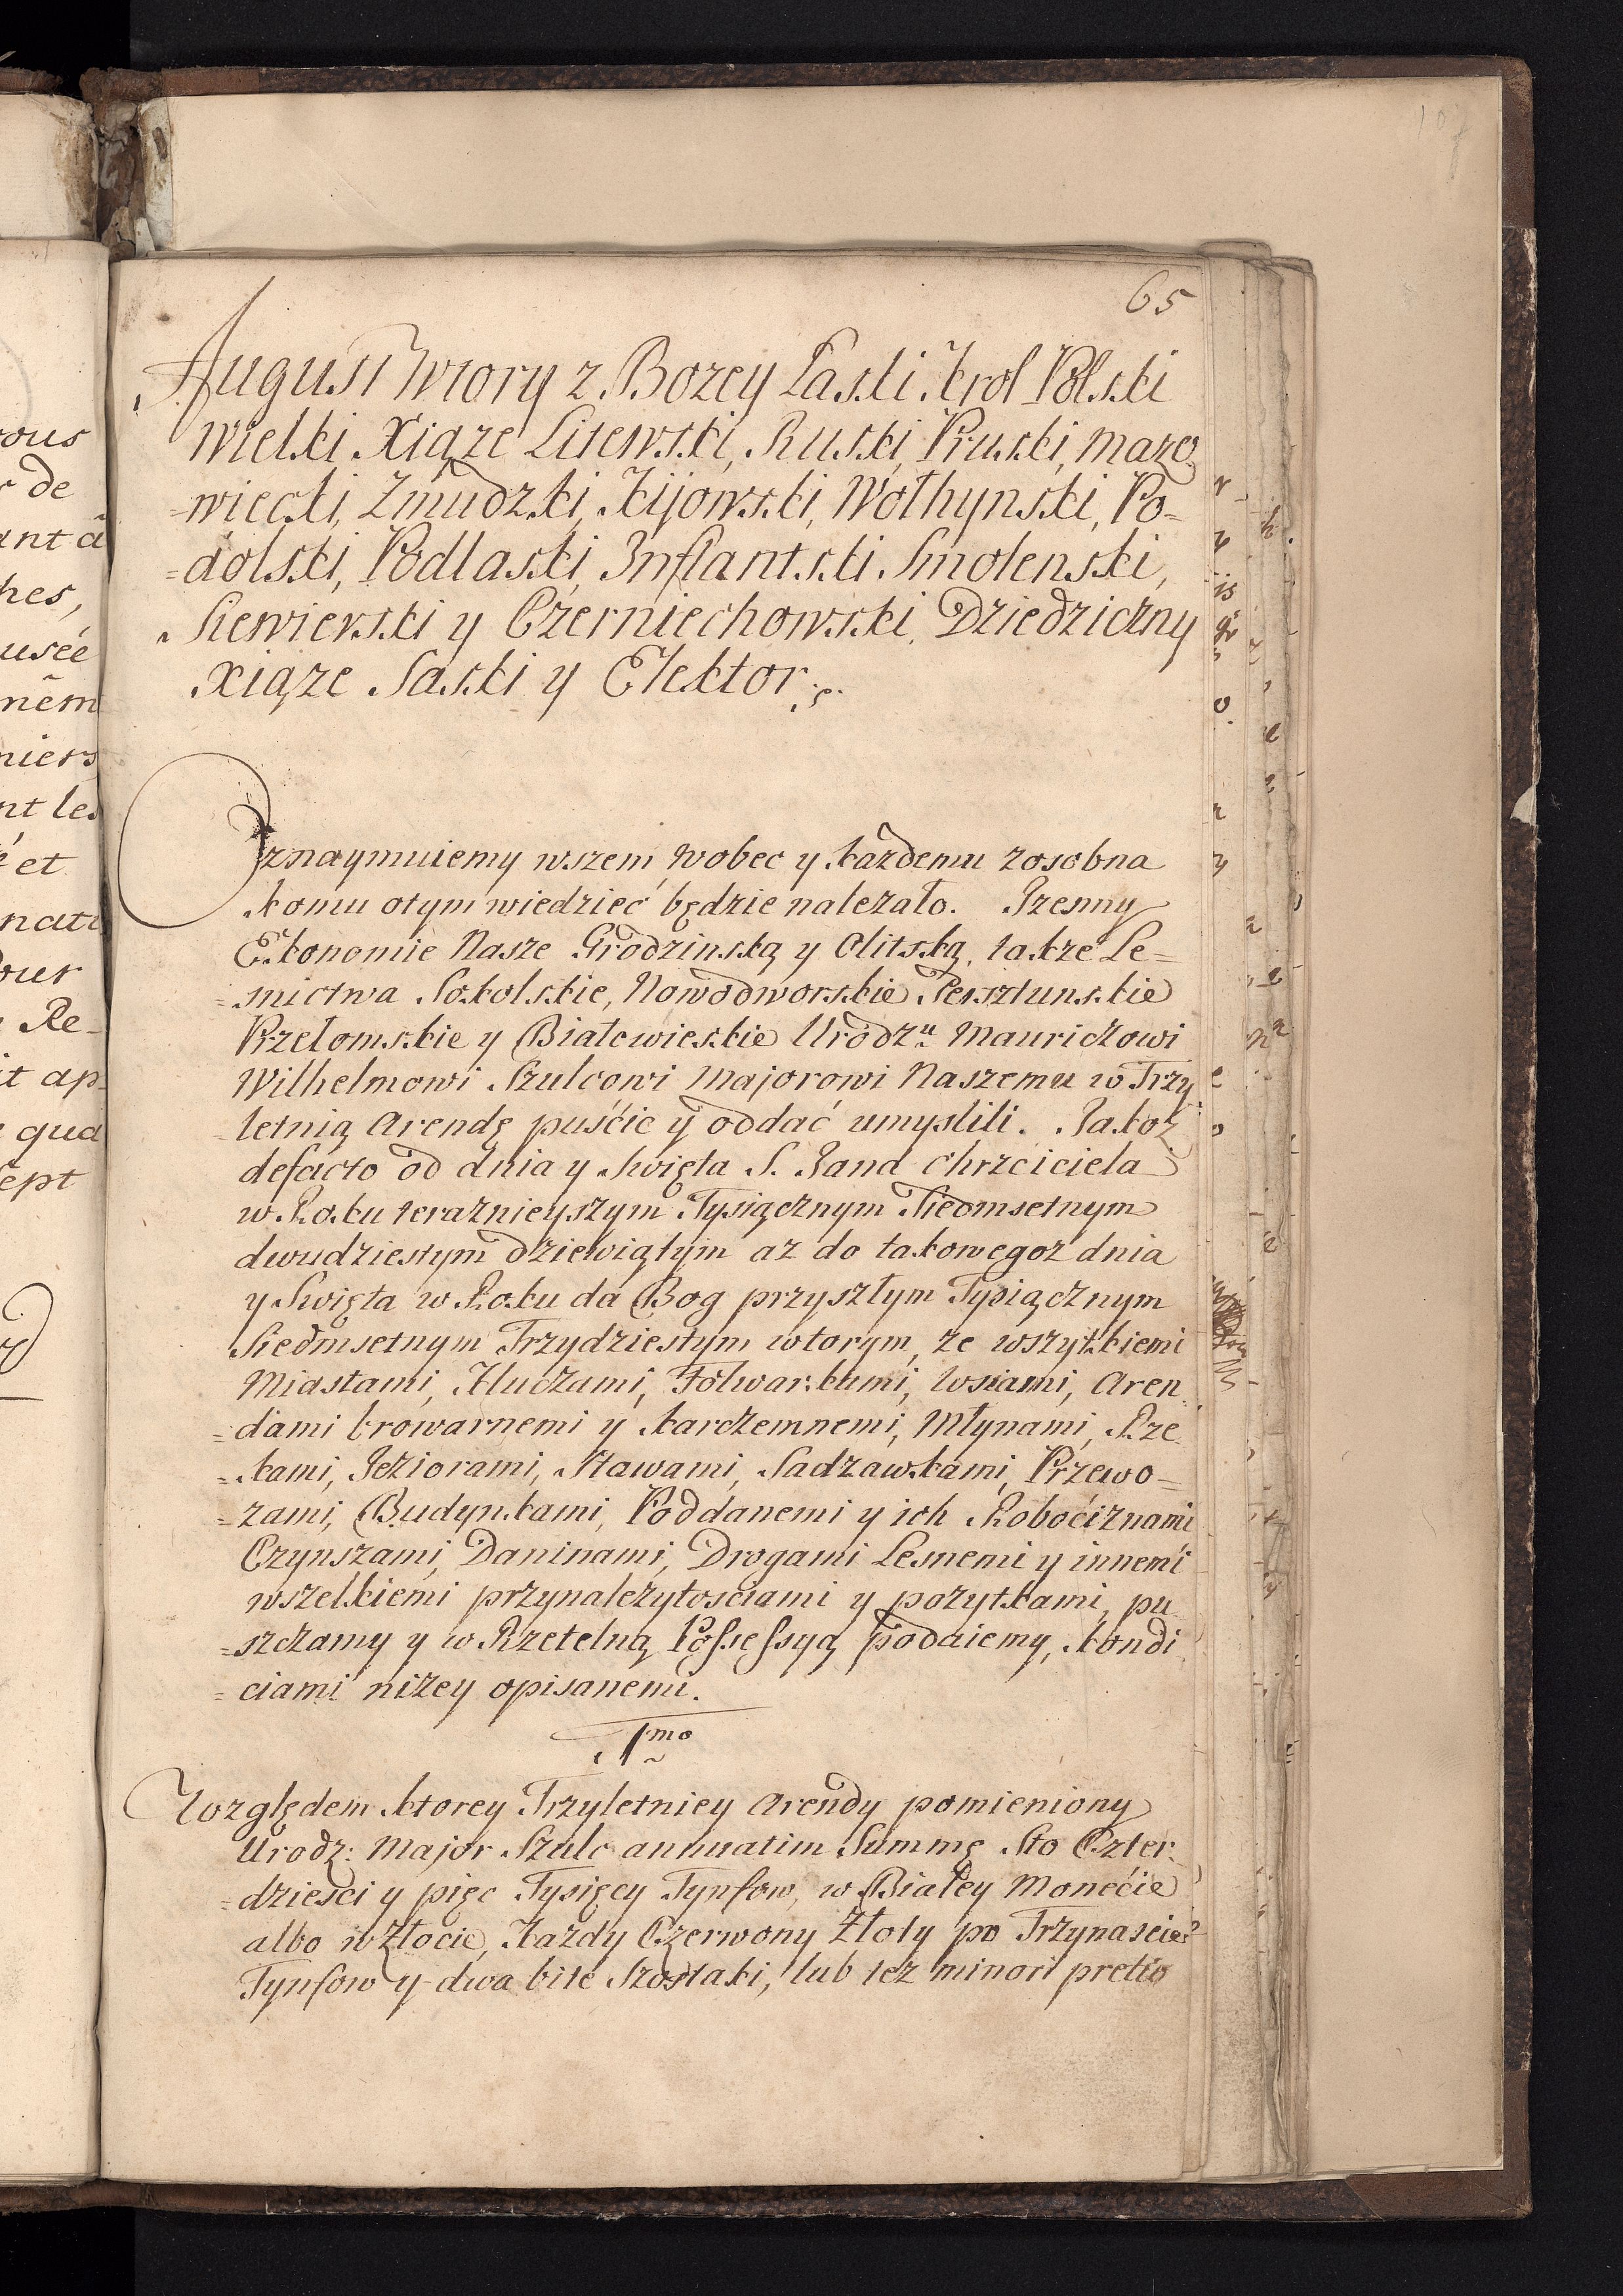 107
65
August Wtory z Bozey Łaski Krol Polski
Wielki Xiąze Litewski, Ruski, Pruski, Mazo
=wiecki, Zmudzki, Kijowski, Wołhynski, Po=
=dolski, Podlaski, Inflantski Smolenski,
Siewierski y Czerniechowski, Dziedziczny
Xiąze Saski y Elektor
Oznaymuiemy wszem wobec y każdemu zosobna
komu otym wiedzieć będzie nalezało. Izesmy
Ekonomie Nasze Grodzinską y Olitską, takze Le=
=snictwa Sokolskie, Nowodworskie Persztunskie
Przełomskie y Białowieskie Urodzu Mauriczowi
Wilhelmowi Szulcowi Majorowi Naszemu w Trzy
letnią Arendę puśćic y oddać umyslili. Jakoż
defacto od dnia y Swięta S. Jana Chrzciciela
w Roku teraznieyszym Tysiącznym Siedmsetnym
dwudziestym dziewiątym aż do takowegoż dnia
y Swięta w Roku da Bog przyszłym Tysiącznym
Siedmsetnym Trzydziestym wtorym, ze wszytkiemi
Miastami, Kluczami, Folwarkami, Wsiami, Aren
=dami browarnemi y karczemnemi, Młynami, Rze
=kami, Jeziorami, Stawami, Sadzawkami, Przewo=
=zami, Budynkami, Poddanemi y ich Roboćiznami
Czynszami, Daninami, Drogami Lesnemi y innemi
wszelkiemi przynależytosciami y pożytkami, pu
=szczamy y w Rzetelną Possessyą podaiemy, kondi
=ciami niżey opisanemi.
1mo
Względem ktorey Trzyletniey Arendy pomieniony
Urodz: Major Szulc annuatim Summę Sto Czter
=dziesci y pięc Tysięcy Tynfow, w Białey Monećie
albo w Złocie, Kazdy Czerwony Złoty po Trzynascie
Tynfow y dwa bite Szostaki, lub też minori pretio